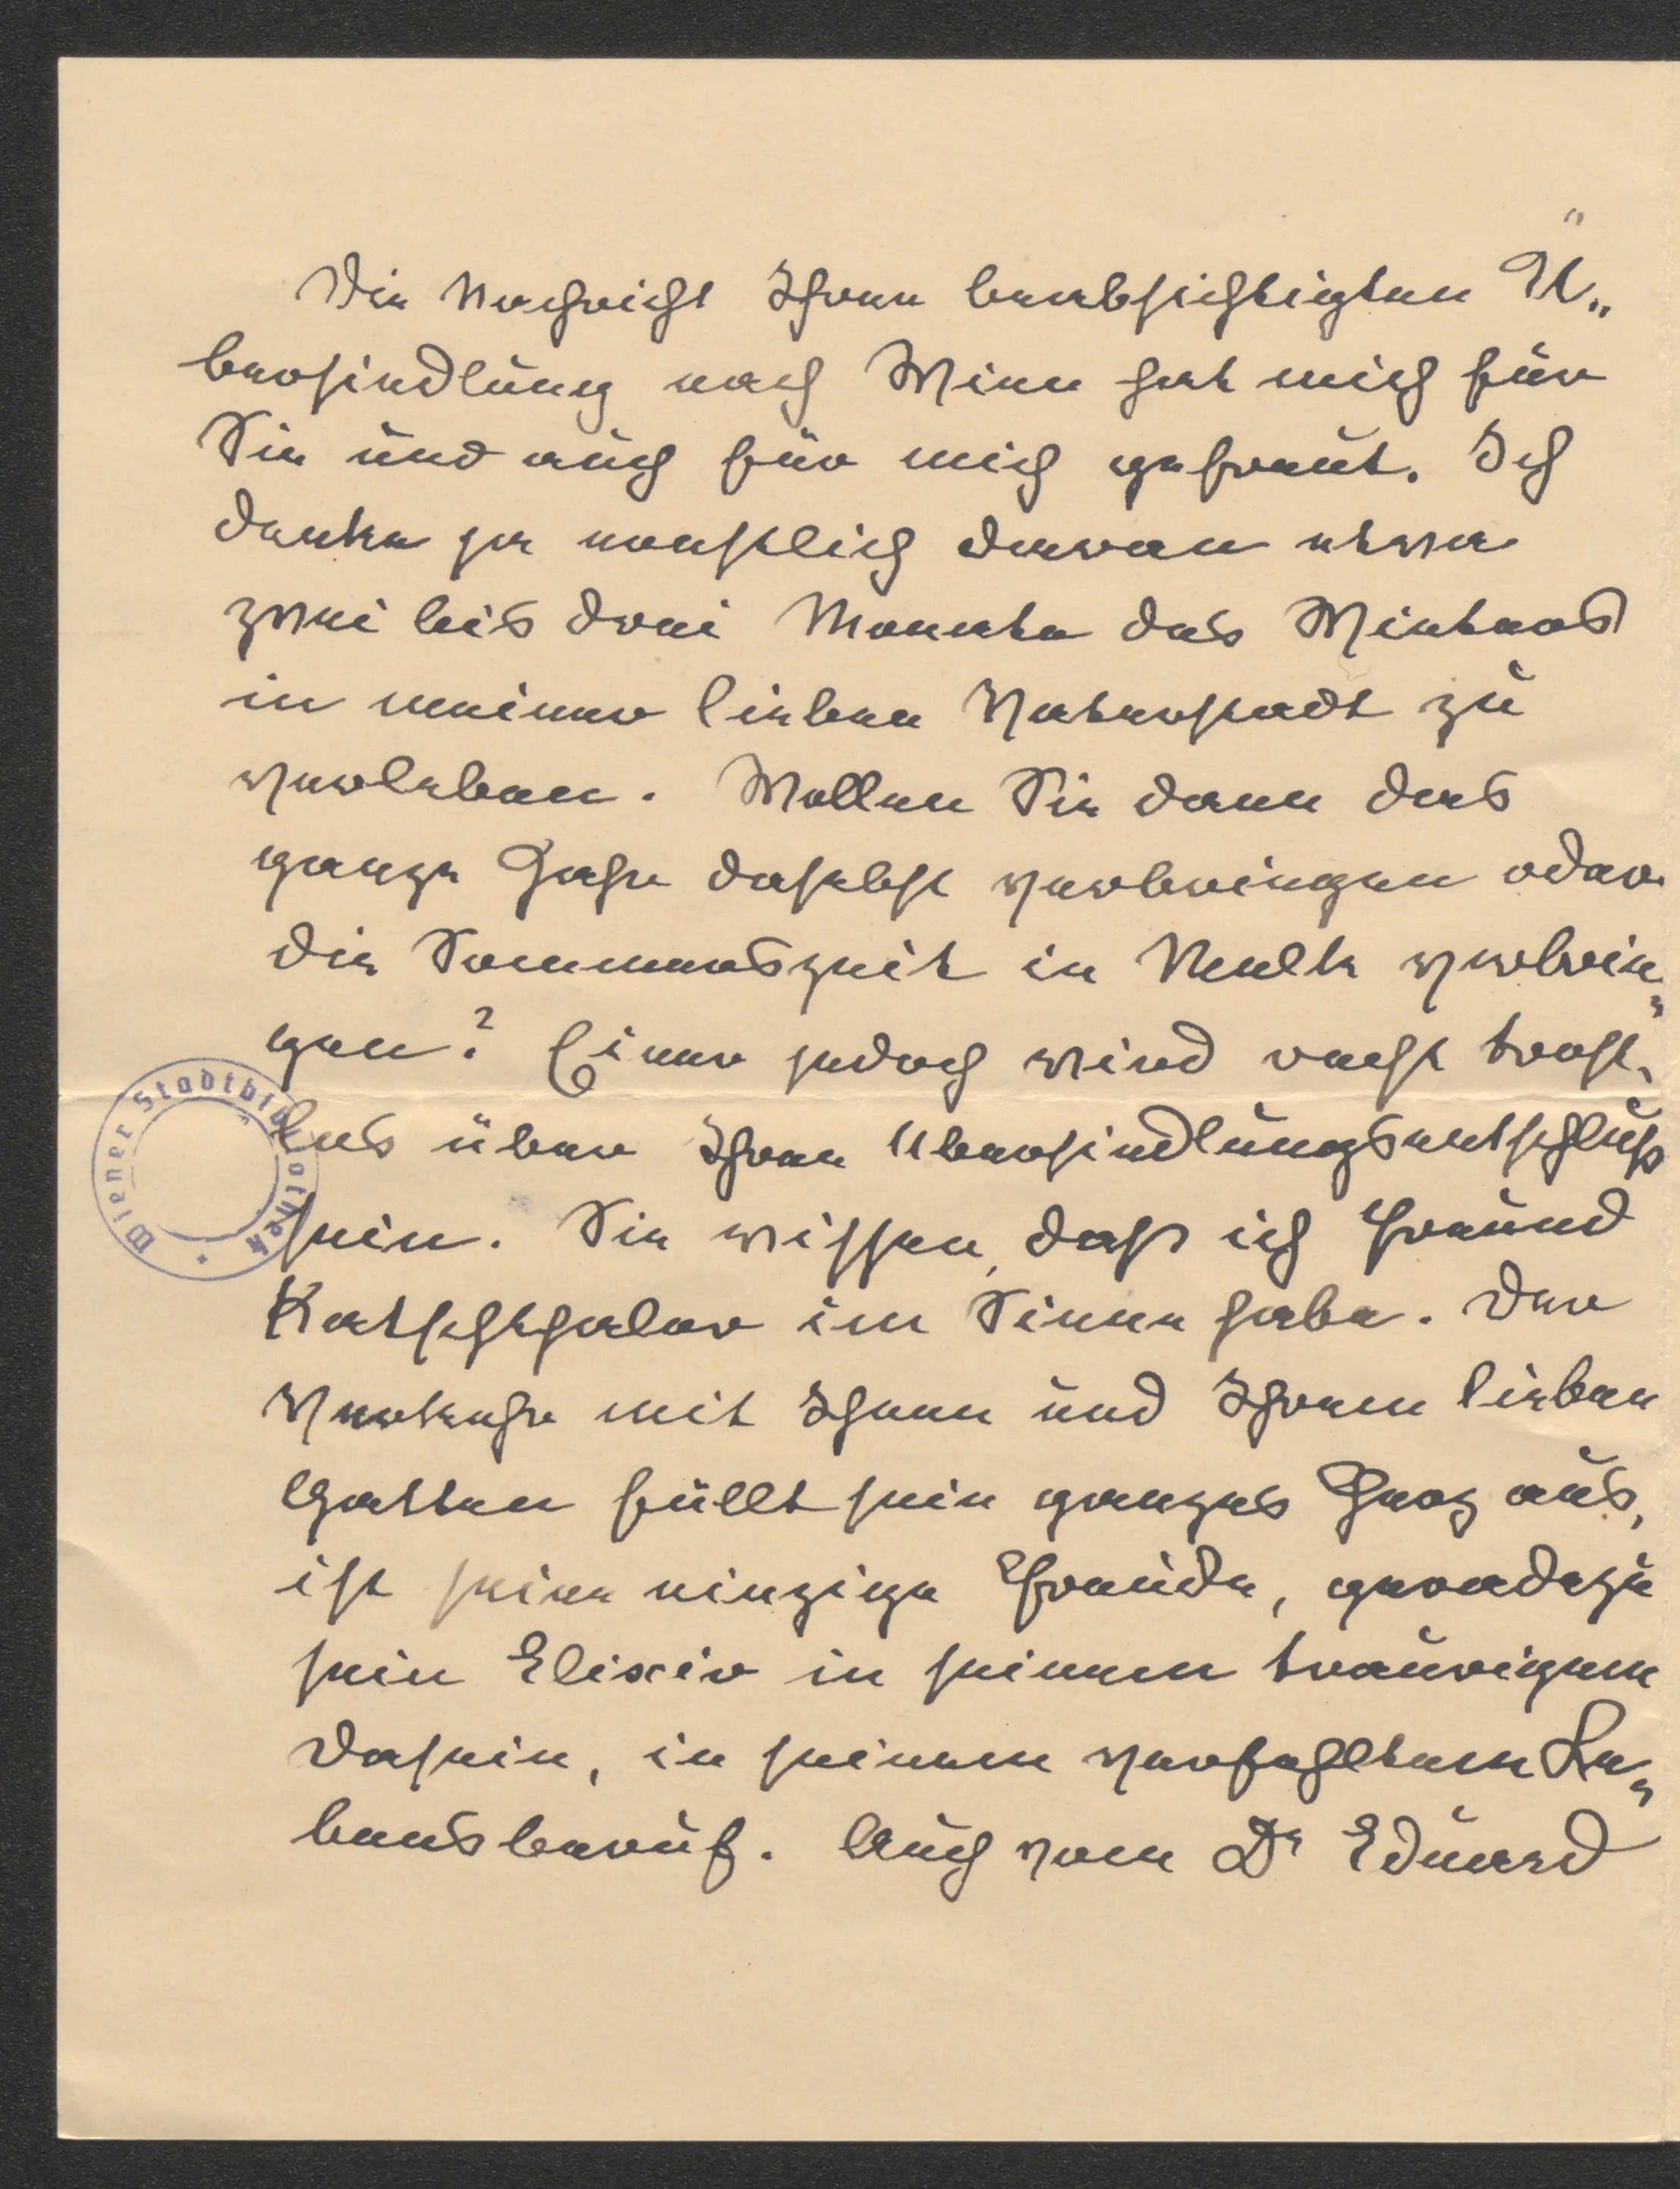 Die Nachricht Ihrer beabsichtigten Ü„
bersiedlung nach Wien hat mich für
Sie und auch für mich gefreut. Ich
denke ja ernstlich daran etwa
zwei bis drei Monate des Winters
in meiner lieben Vaterstadt zu
verleben. Wollen Sie dann das
ganze Jahr daselbst verbringen oder
die Sommerszeit in Melk verbrin„
gen? Einer jedoch wird recht trost„
los über Ihren Übersiedlungsentschluß
sein. Sie wissen, daß ich Freund
Katschthaler im Sinne habe. Der
Verkehr mit Ihnen und Ihrem lieben
Gatten füllt sein ganzes Herz aus,
ist seine einzige Freude, geradezu
sein Elixir in seinem traurigem
Dasein, in seinem verfehltem Le„
bensberuf. Auch vom Dr Eduard
Wiener Stadtbibliothek